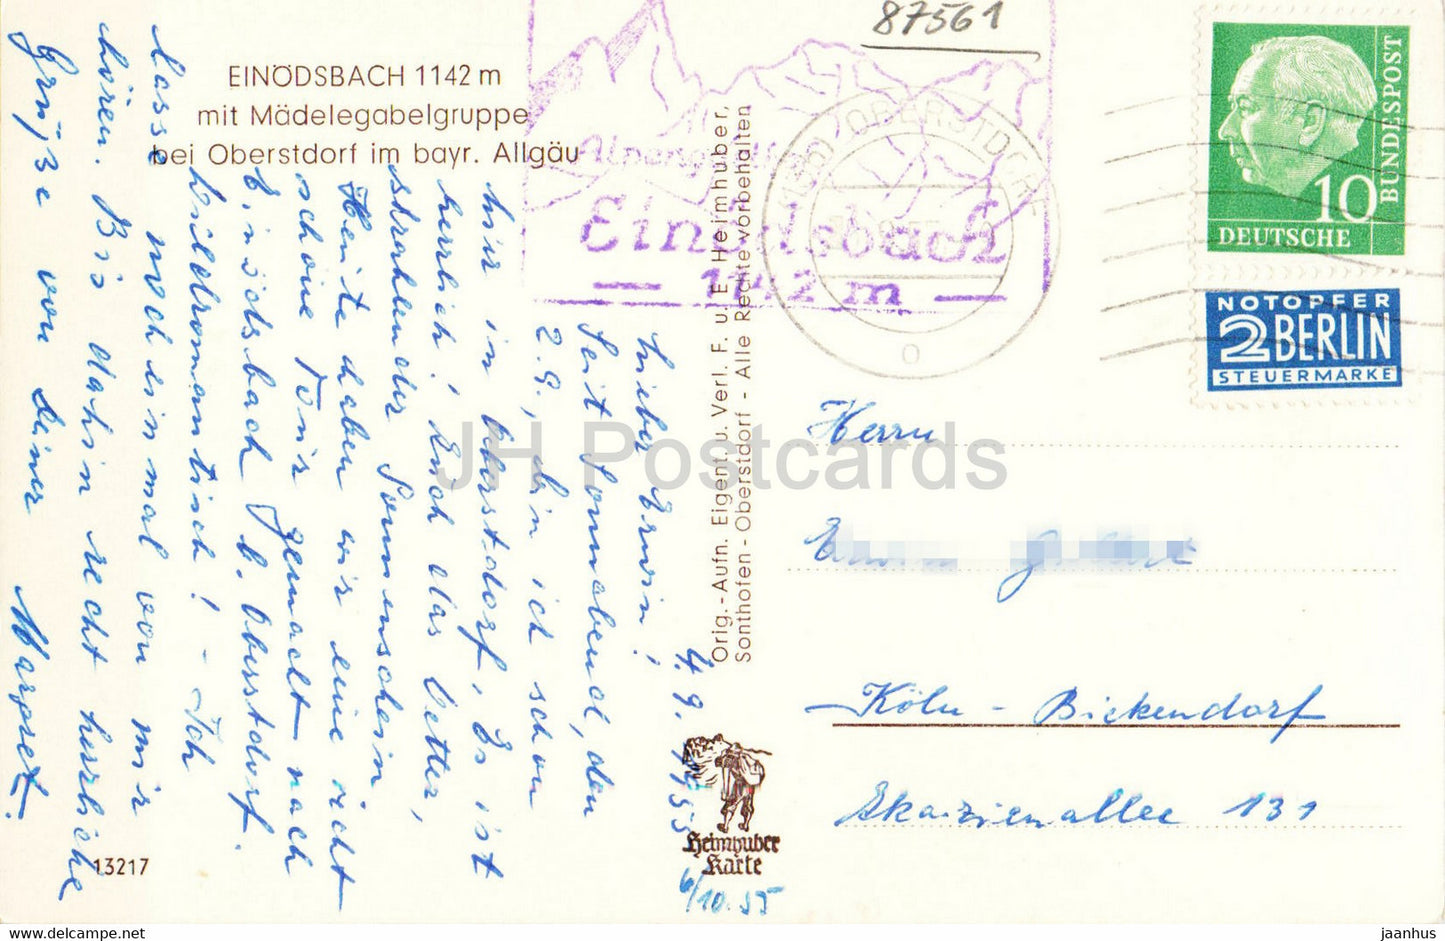 EINÖDSBACH 1142 m
mit Mädelegabelgruppe
bei Oberstdorf im bayr. Allgäu
87561
Einödsbach
— 1142 m —
OBERSTDORF
10
DEUTSCHE
BUNDESPOST
NOTOPFER
2 BERLIN
STEUERMARKE
Orig.-Aufn. Eigent. u. Verl. F. u. E. Heimhuber,
Sonthofen - Oberstdorf - Alle Rechte vorbehalten
4.9.1955
Lieber Erwin!
Seit Sonnabend, den
2.9., bin ich schon
hier in Oberstdorf. Es ist
herrlich! Auch das Wetter,
strahlender Sonnenschein.
Heute haben wir eine recht
schöne Tour gemacht nach
Einödsbach b. Oberstdorf.
Wildromantisch! - Ich
lasse noch einmal von mir
hören. Bis dahin recht herzliche
Grüße von Deiner
Margret.
13217
Heimhuber
Karte
6/10.55
Herrn
Köln - Bickendorf
Akazienallee 131
JH Postcards
jaanhus